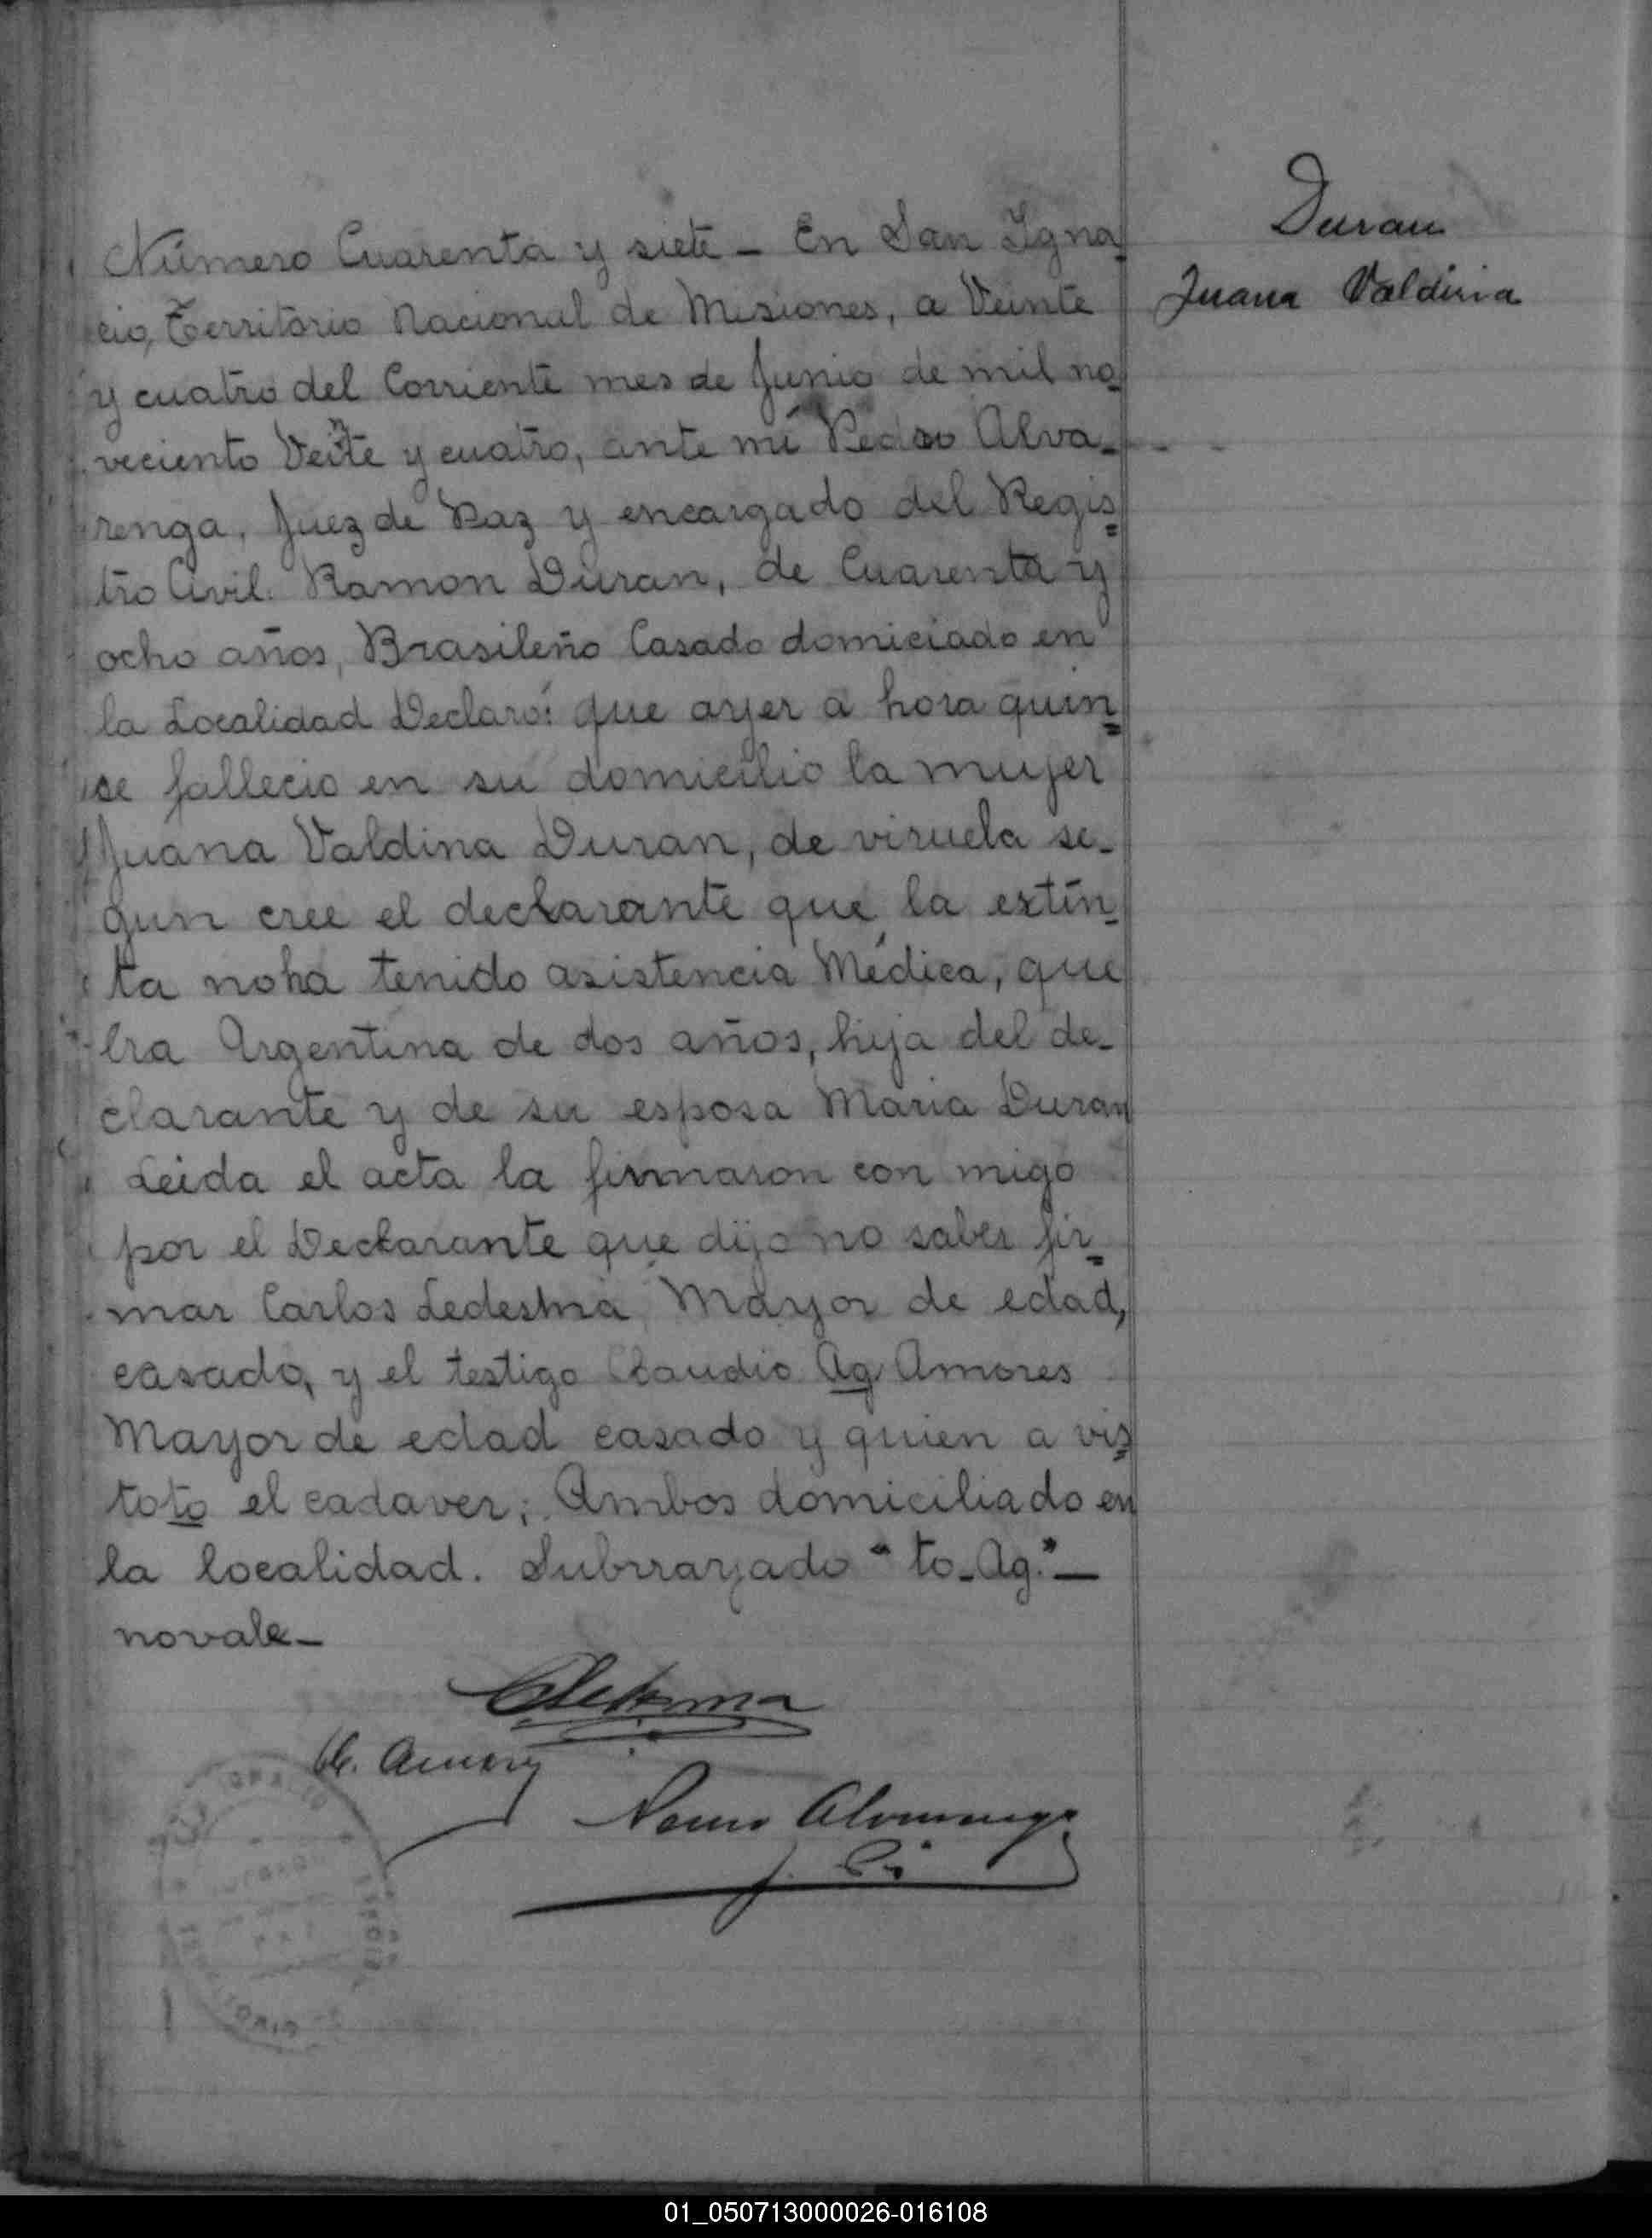 Número Cuarenta y siete - En San Igna-
cio, Territorio Nacional de Misiones, a Veinte
y cuatro del Corriente mes de Junio de mil no-
veciento Veinte y cuatro, ante mí Pedro Alva-
renga, Juez de Paz y encargado del Regis=
tro Civil. Ramon Duran, de Cuarenta y
ocho años, Brasileño Casado domiciado en
la Localidad Declaró: que ayer a hora quin=
se fallecio en su domicilio la mujer
Juana Valdina Duran, de viruela se-
gun cree el declarante que la extin-
ta no ha tenido asistencia Médica, que
Era Argentina de dos años, hija del de-
clarante y de su esposa Maria Duran
Leida el acta la firmaron con migo
por el Declarante que dijo no saber fir=
mar Carlos Ledesma, Mayor de edad,
casado, y el testigo Claudio Ag Amores
Mayor de edad casado y quien a vis=
toto el cadaver; Ambos domiciliado en
la localidad. Subrrayado "to-Ag."-
novale-
Duran
Juana Valdina
CLedesma
Cl. Amores
Pedro Alvarenga
01_050713000026-016108